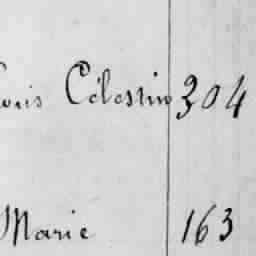 Louis Célestin 304
Marie 163